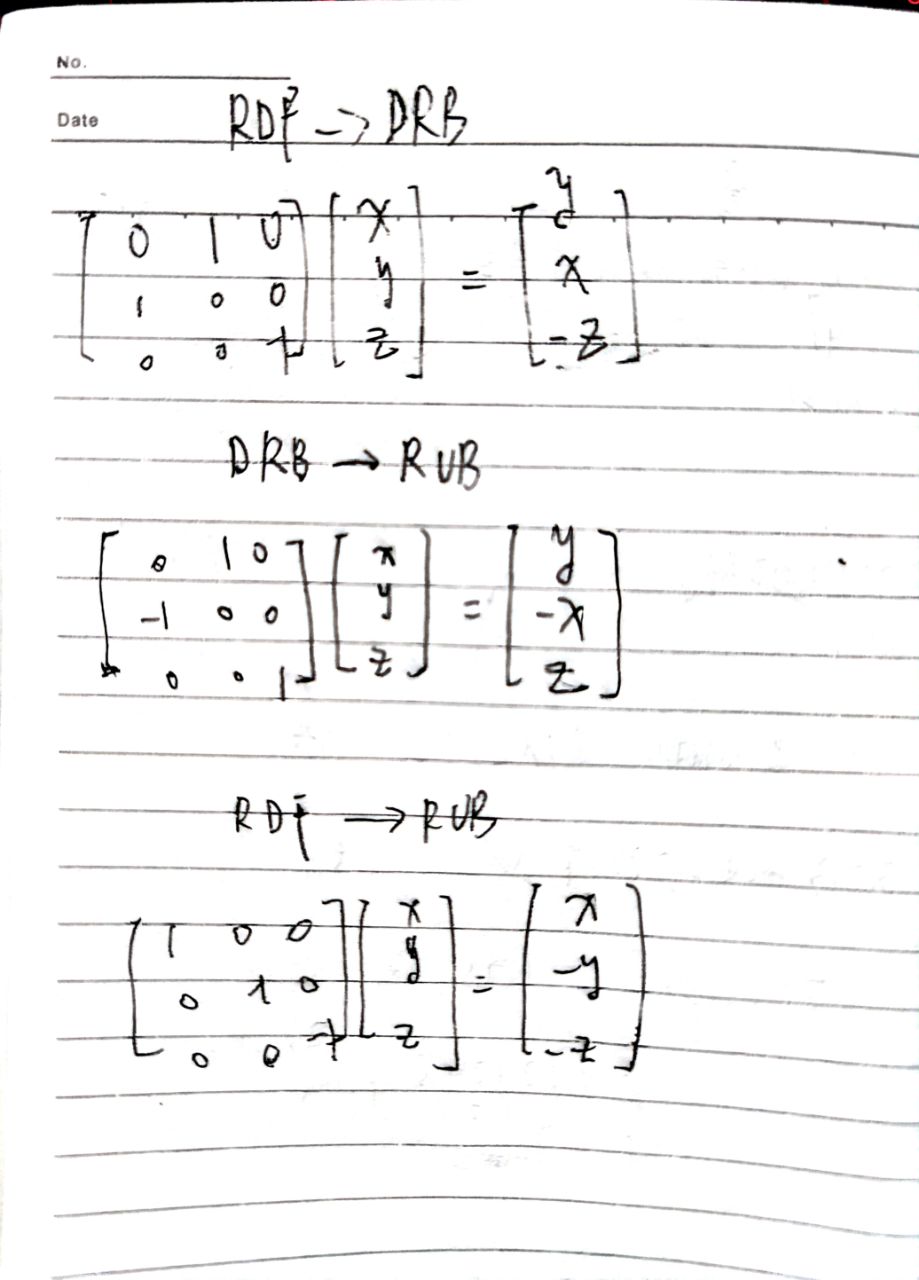 No.
Date
RDF -> DRB
[0 1 0; 1 0 0; 0 0 -1] [x; y; z] = [y; x; -z]
DRB → RUB
[0 1 0; -1 0 0; 0 0 1] [x; y; z] = [y; -x; z]
RDF → RUB
[1 0 0; 0 1 0; 0 0 -1] [x; y; z] = [x; -y; -z]